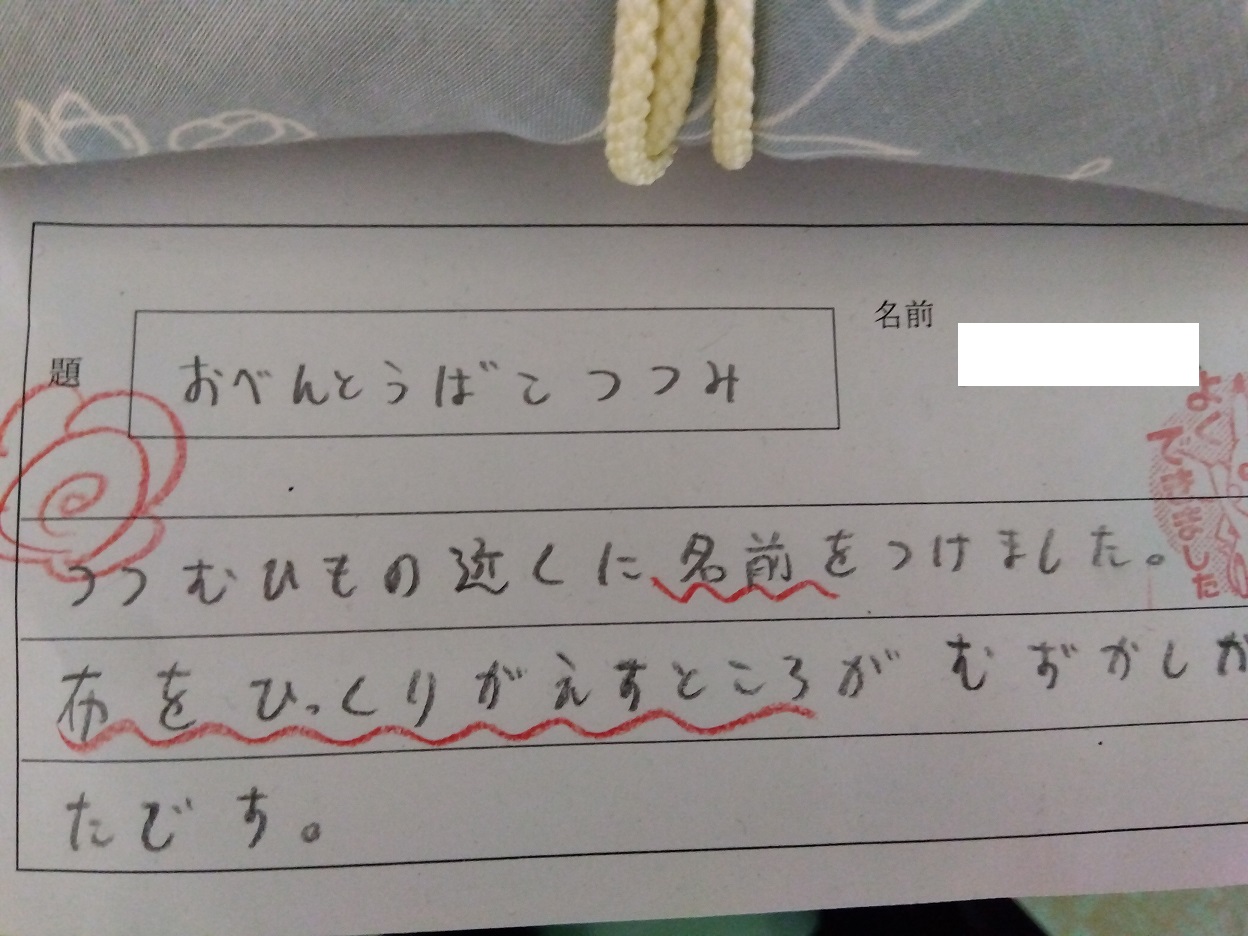 題 おべんとうばこつつみ
名前
よくできました
つつむひもの近くに名前をつけました。
布をひっくりがえすところがむずかしか
たです。